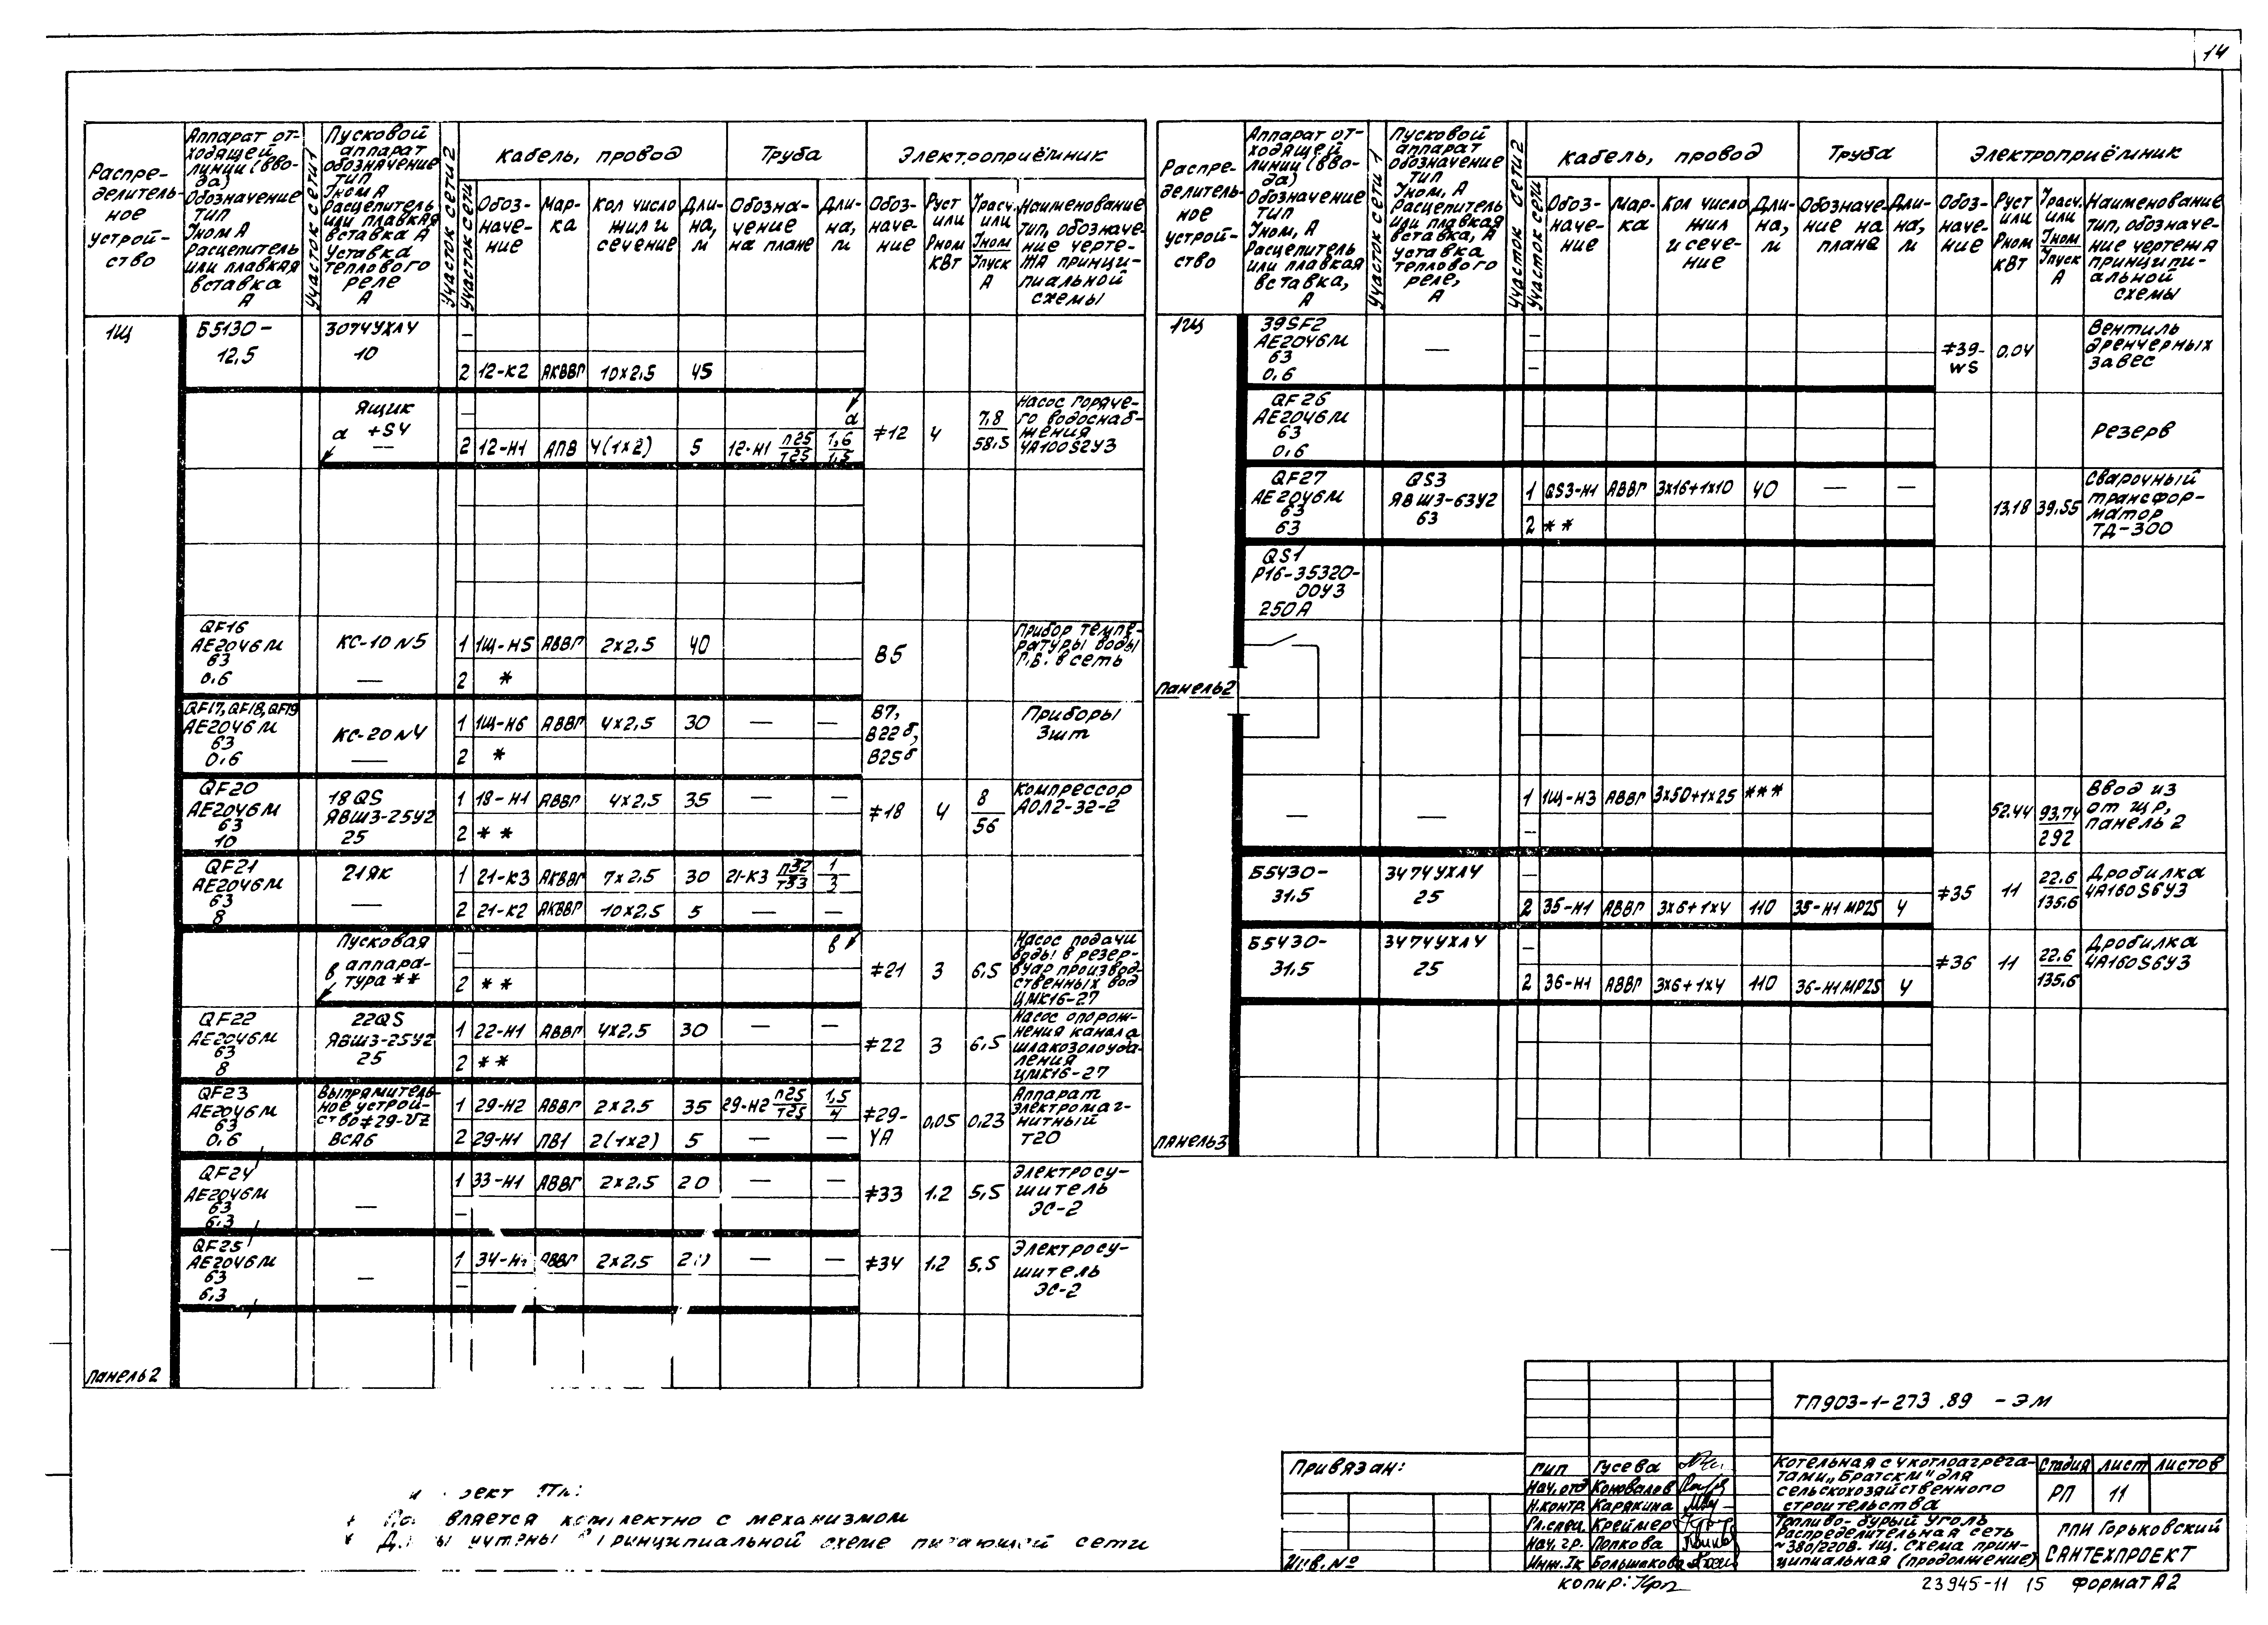 14
Распре-
делитель-
ное
устрой-
ство
Аппарат от-
ходящей
линии (вво-
да)
Обозначение
тип
Iном А
Расцепитель
или плавкая
вставка
А
Участок сети 1
Пусковой
аппарат
обозначение
тип
Iном А
Расцепитель
или плавкая
вставка А
Уставка
теплового
реле
А
Участок сети 2
Участок сети
Кабель, провод
Труба
Электроприёмник
Обоз-
наче-
ние
Мар-
ка
Кол число
жил и
сечение
Дли-
на,
м
Обозна-
чение
на плане
Дли-
на,
м
Обоз-
наче-
ние
Руст
или
Рном
кВт
Iрасч.
или
Iном
Iпуск
А
Наименование
тип, обозначе-
ние черте-
жа принци-
пиальной
схемы
1Щ Б5130- 3074УХЛ4 —
12,5 10
2 12-К2 АКВВГ 10х2,5 45
Ящик
а +S4 — а
—
2 12-Н1 АПВ 4(1х2) 5 12-Н1 П25/Т25 1,6/1,5 ≠12 4 7,8/58,5
Насос горяче-
го водоснаб-
жения
4А100S2У3
QF16
АЕ2046М
63
0,6
КС-10 №5
—
1 1Щ-Н5 АВВГ 2х2,5 40
2 *
В5
Прибор темпе-
ратуры воды
Г.В. в сеть
QF17, QF18, QF19
АЕ2046М
63
0,6
КС-20 №4
—
1 1Щ-Н6 АВВГ 4х2,5 30 — —
2 *
В7,
В22б,
В25б
Приборы
3шт
QF20
АЕ2046М
63
10
18QS
ЯВШ3-25У2
25
1 18-Н1 АВВГ 4х2,5 35 — —
2 **
≠18 4 8/56
Компрессор
АОЛ2-32-2
QF21
АЕ2046М
63
8
21ЯК
—
1 21-К3 АКВВГ 7х2,5 30 21-К3 П32/Т33 1/3
2 21-К2 АКВВГ 10х2,5 5 — —
Пусковая
в аппара-
тура **
в
—
2 **
≠21 3 6,5
Насос подачи
воды в резер-
вуар производ-
ственных вод
ЦМК16-27
QF22
АЕ2046М
63
8
22QS
ЯВШ3-25У2
25
1 22-Н1 АВВГ 4х2,5 30 — —
2 **
≠22 3 6,5
Насос опорож-
нения канала
шлакозолоуда-
ления
ЦМК16-27
QF23
АЕ2046М
63
0,6
Выпрямитель-
ное устрой-
ство ≠29-VZ
ВСА6
1 29-Н2 АВВГ 2х2,5 35 29-Н2 П25/Т25 1,5/4
2 29-Н1 ПВ1 2(1х2) 5 — —
≠29-
УА
0,05 0,23
Аппарат
электромаг-
нитный
Т20
QF24
АЕ2046М
63
6,3
—
1 33-Н1 АВВГ 2х2,5 20 — —
—
≠33 1,2 5,5
Электросу-
шитель
ЭС-2
QF25
АЕ2046М
63
6,3
—
1 34-Н1 АВВГ 2х2,5 20 — —
—
≠34 1,2 5,5
Электросу-
шитель
ЭС-2
Панель 2
Поставляется комплектно с механизмом
учтены в принципиальной схеме питающей сети
Распре-
делитель-
ное
устрой-
ство
Аппарат от-
ходящей
линии (вво-
да)
Обозначение
тип
Iном, А
Расцепитель
или плавкая
вставка,
А
Участок сети 1
Пусковой
аппарат
обозначение
тип
Iном, А
Расцепитель
или плавкая
вставка, А
Уставка
теплового
реле,
А
Участок сети 2
Участок сети
Кабель, провод
Труба
Электроприёмник
Обоз-
наче-
ние
Мар-
ка
Кол число
жил
и сече-
ние
Дли-
на,
м
Обозначе-
ние на
плане
Дли-
на,
м
Обоз-
наче-
ние
Руст
или
Рном
кВт
Iрасч.
или
Iном
Iпуск
А
Наименование
тип, обозначе-
ние чертежа
принципи-
альной
схемы
1Щ
39SF2
АЕ2046М
63
0,6
—
—
—
≠39-
WS
0,04
Вентиль
дренчерных
завес
QF26
АЕ2046М
63
0,6
Резерв
QF27
АЕ2046М
63
63
QS3
ЯВШ3-63У2
63
1 QS3-Н1 АВВГ 3х16+1х10 40 — —
2 **
13,18 39,55
Сварочный
трансфор-
матор
ТД-300
QS1
Р16-35320-
00У3
250А
Панель 2
— —
1 1Щ-Н3 АВВГ 3х50+1х25 ***
—
52,44 93,74/292
Ввод из
от ЩР,
панель 2
Б5430-
31,5
3474УХЛ4
25
—
2 35-Н1 АВВГ 3х6+1х4 110 35-Н1 МР25 4
≠35 11 22,6/135,6
Дробилка
4А160S6У3
Б5430-
31,5
3474УХЛ4
25
—
2 36-Н1 АВВГ 3х6+1х4 110 36-Н1 МР25 4
≠36 11 22,6/135,6
Дробилка
4А160S6У3
Панель 3
ТП903-1-273.89 -ЭМ
Привязан:
Инв.№
ГИП Гусева
Нач.отд Коновалов
Н.контр. Карякина
Гл.спец. Креймер
Нач. гр. Попкова
Инж.Iк Большакова
Котельная с 4 котлоагрега-
тами „Братскм" для
сельскохозяйственного
строительства
Стадия Лист Листов
РП 11
Топливо-бурый уголь
Распределительная сеть
~380/220В. 1Щ. Схема прин-
ципиальная (продолжение)
ГПИ Горьковский
САНТЕХПРОЕКТ
копир:
23945-11 15 Формат А2